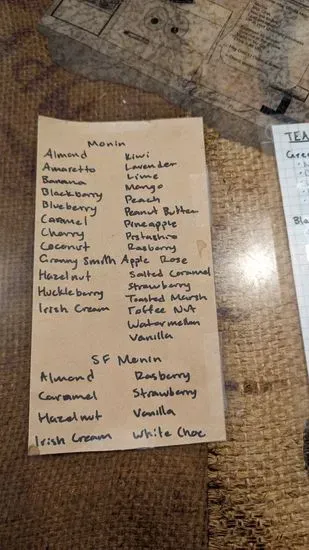 Monin
Almond Kiwi
Amaretto Lavender
Banana Lime
Blackberry Mango
Blueberry Peach
Caramel Peanut Butter
Cherry Pineapple
Coconut Pistashio
Granny Smith Apple Rasberry
Hazelnut Rose
Huckleberry Salted Caramel
Irish Cream Strawberry
Toasted Marsh
Toffee Nut
Watermellon
Vanilla
SF Monin
Almond Rasberry
Caramel Strawberry
Hazelnut Vanilla
Irish Cream White Choc
TEA